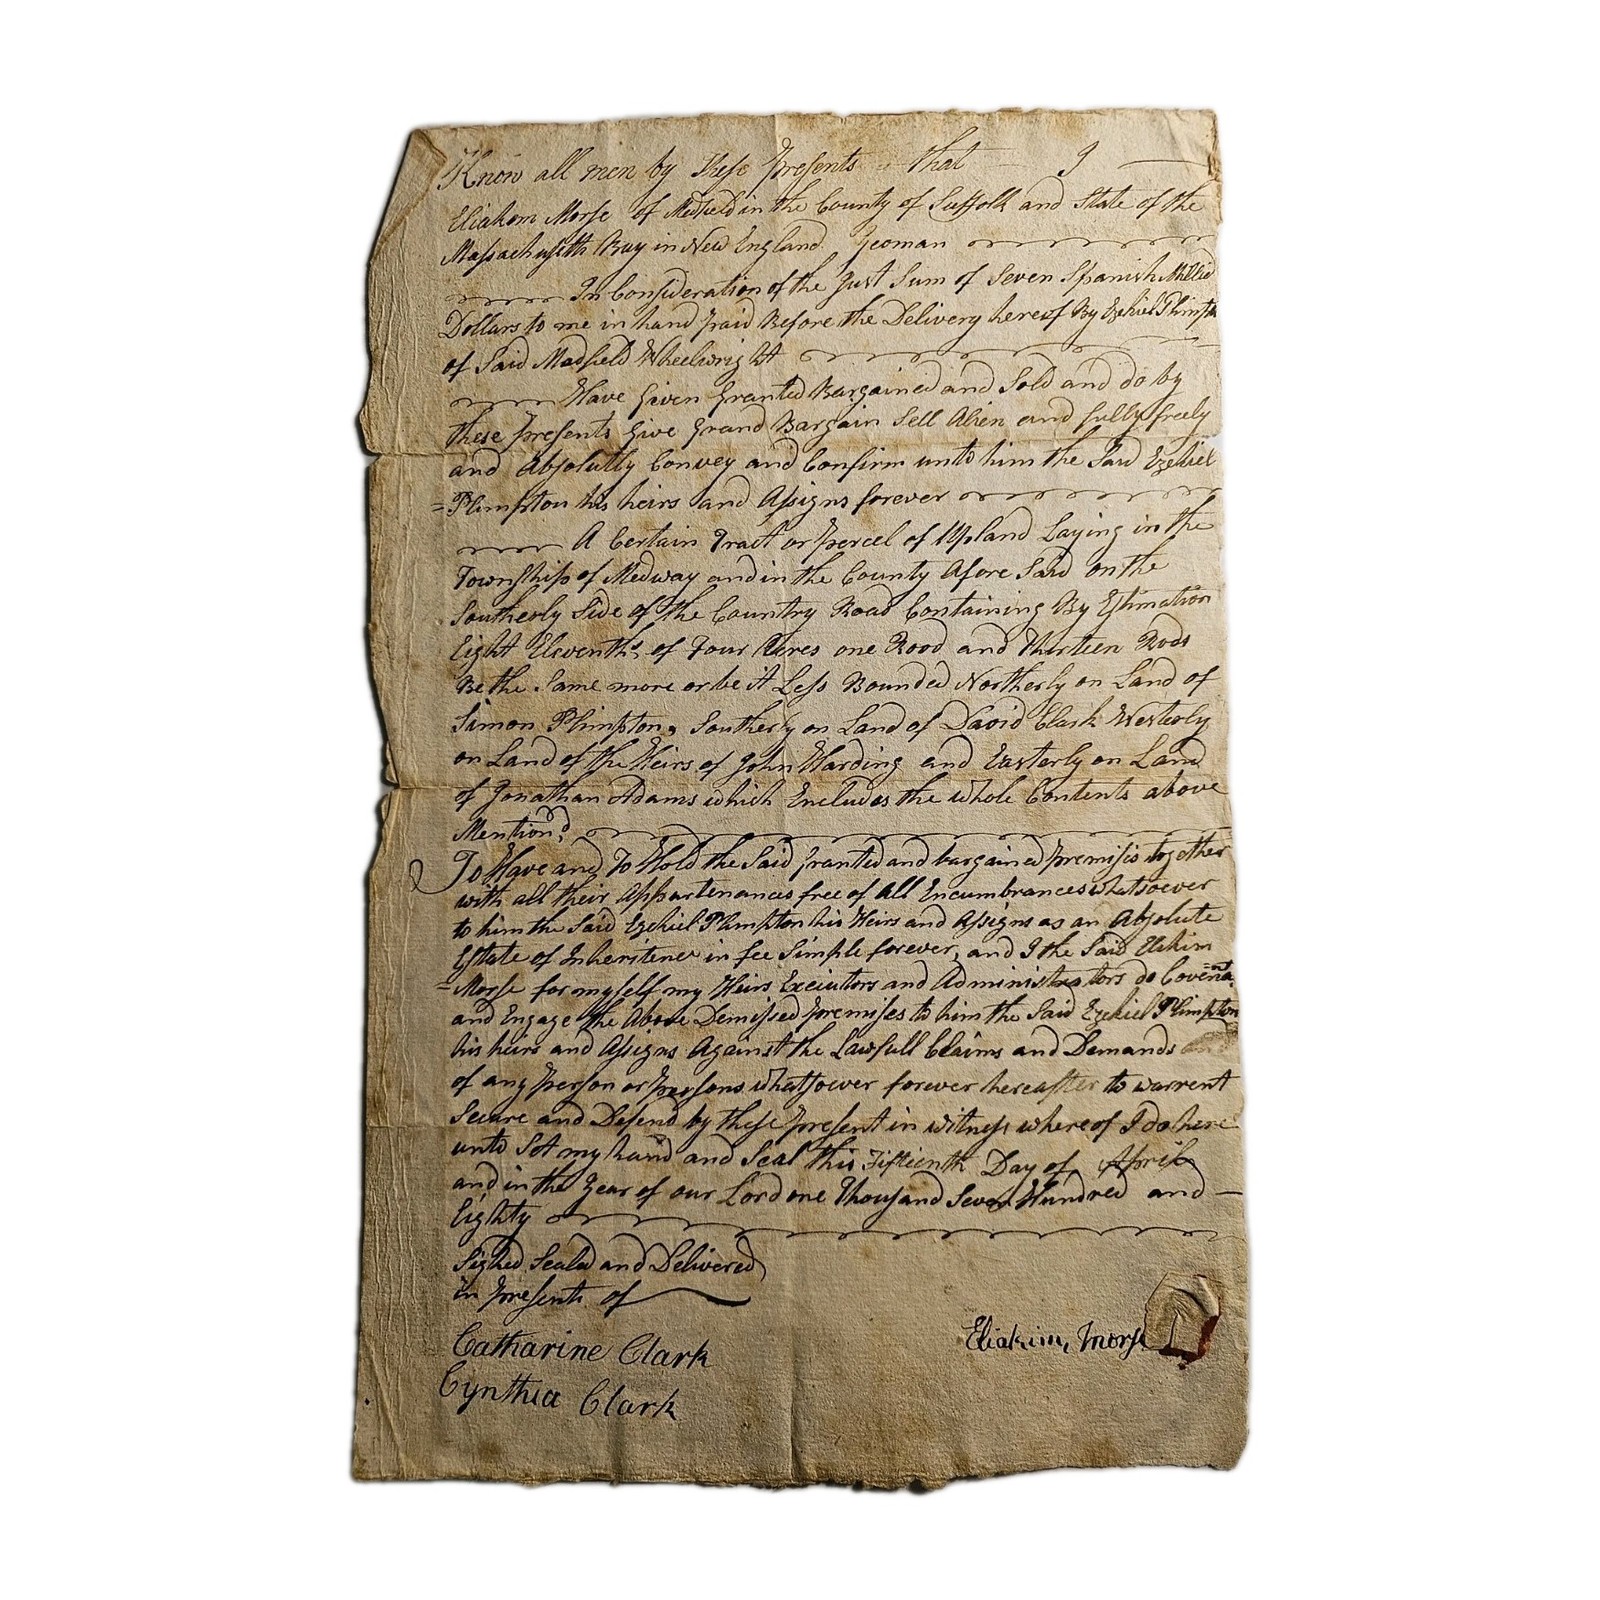 Know all men by these presents that I
Eliakem Morse of Medfield in the County of Suffolk and State of the
Massachusetth Bay in New England Yeoman
In Consideration of the Just Sum of Seven Spanish Milled
Dollars to me in hand paid Before the Delivery hereof By Ezekiel Plimpton
of Said Madfield Wheelwright
Have Given Granted Bargained and Sold and do by
these presents Give Grand Bargain Sell Alien and fully freely
and Absolutly Convey and Confirm unto him the Said Ezekiel
=Plimpton his heirs and Assigns forever
A Certain Tract or percel of Upland Laying in the
Township of Medway and in the County Afore Said on the
Southerly Side of the Country Road Containing By Estimation
Eight Elevenths of Four Acres one Rood and Thirteen Rods
Be the Same more or be it Less Bounded Northerly on Land of
Simon Plimpton, Southerly on Land of David Clark Westerly
on Land of the Heirs of John Harding and Easterly on Land
of Jonathan Adams which Encludes the whole Contents above
Mention.d
To Have and To Hold the Said granted and bargained premisis together
with all their Appurtenances free of all Encumbrances whatsoever
to him the Said Ezekiel Plimpton his Heirs and Assigns as an Absolute
Estate of Inheritence in fee Simple forever, and I the Said Elikim
=Morse for myself my Heirs Executors and Administrators do Covenant
and Engage the Above Demissed premises to him the Said Ezekiel Plimpton
his heirs and Assigns Against the Lawfull Claims and Demands
of any person or persons whatsoever forever hereafter to warrent
Secure and Defend by these present in witness whereof I do here
unto Set my hand and Seal this Fifteenth Day of April
and in the Year of our Lord one Thousand Seven Hundred and
Eighty
Signed Seald and Delivered
in presents of
Catharine Clark
Cynthia Clark
Eliakim, Morse